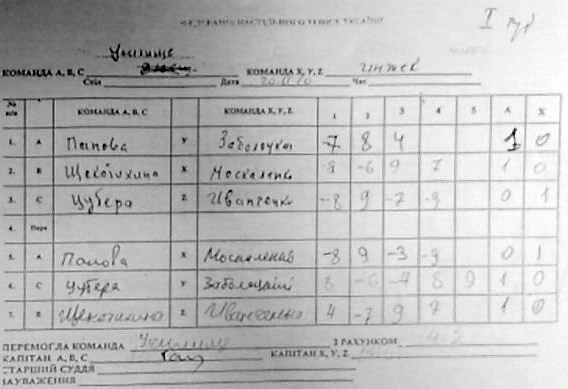 ФЕДЕРАЦІЯ НАСТІЛЬНОГО ТЕНІСУ УКРАЇНИ
І тур
Училище
КОМАНДА А, В, С КОМАНДА X, Y, Z
Стіл Дата Час
№ п/п КОМАНДА А, В, С КОМАНДА X, Y, Z 1 2 3 4 5 А X
1. А Попова Y -7 8 4 1 0
2. В Щекотихина X Москаленко -8 -6 9 7 1 0
3. С Цубера Z Иванченко -8 9 -7 -9 0 1
4. Пара
5. А Попова X Москаленко -8 9 -3 -9 0 1
6. С Цубера Y 8 -6 -7 8 9 1 0
7. В Щекотихина Z Иванченко 4 -7 9 7 1 0
ПЕРЕМОГЛА КОМАНДА Училище З РАХУНКОМ 4-2
КАПІТАН А, В, С КАПІТАН X, Y, Z
СТАРШИЙ СУДДЯ
ЗАУВАЖЕННЯ